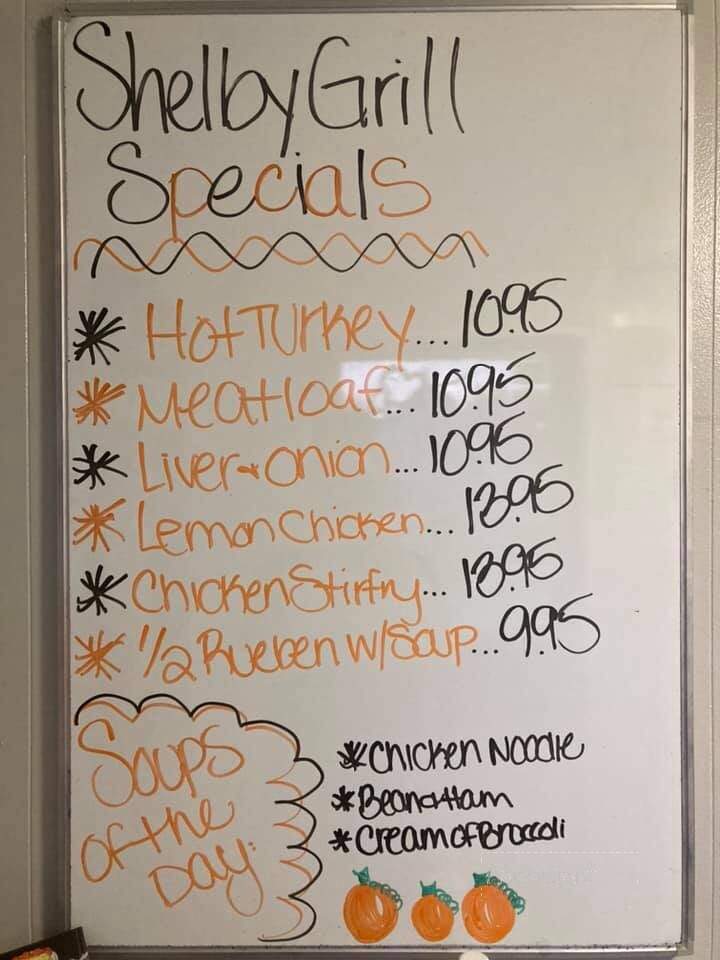 Shelby Grill
Specials
* Hot Turkey... 10.95
* Meatloaf... 10.95
* Liver & onion... 10.95
* Lemon Chicken... 13.95
* Chicken Stirfry... 13.95
* 1/2 Rueben w/Soup... 9.95
Soups
of the
Day:
* Chicken Noodle
* Bean & Ham
* Cream of Broccoli